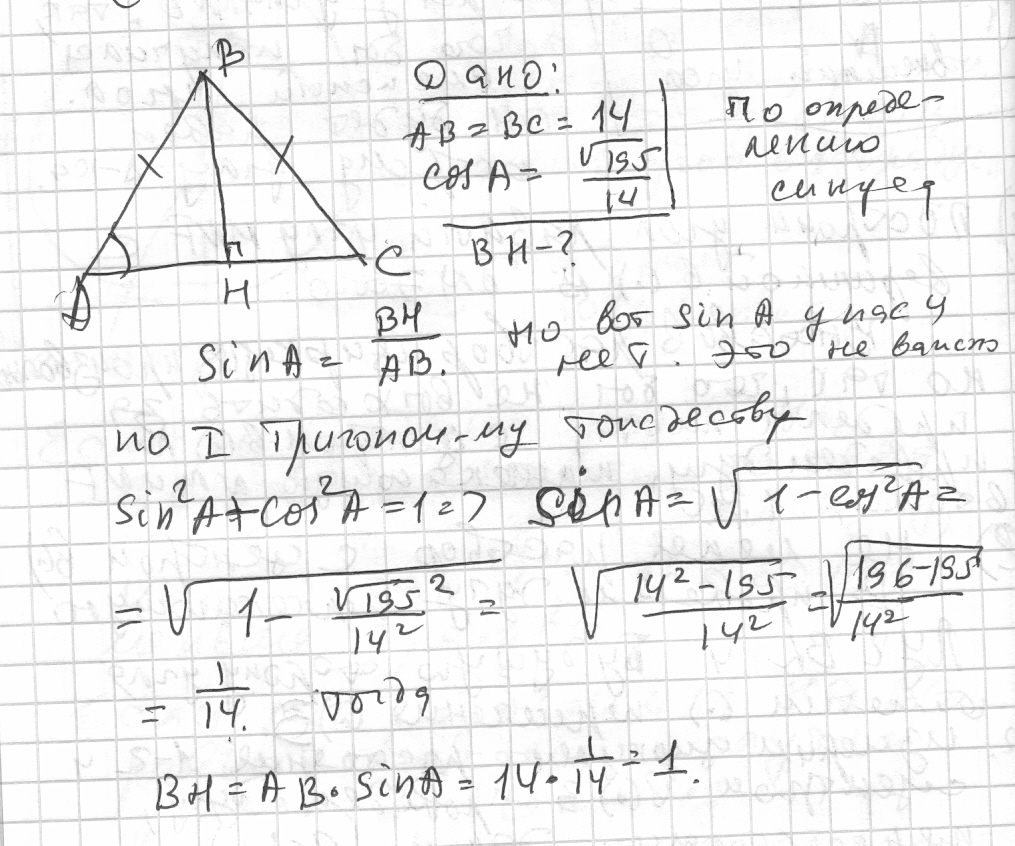 B
A
H
C
Дано:
AB = BC = 14
cos A = √195/14
BH - ?
По опреде-
лению
синуса
sin A = BH/AB. но вот sin A у нас и
нет. Это не важно
по I Тригоном-му тождеству
sin²A + cos²A = 1 => sin A = √(1 - cos²A) =
= √(1 - √195²/14²) = √((14² - 195)/14²) = √((196 - 195)/14²)
= 1/14. тогда
BH = AB · sin A = 14 · 1/14 = 1.